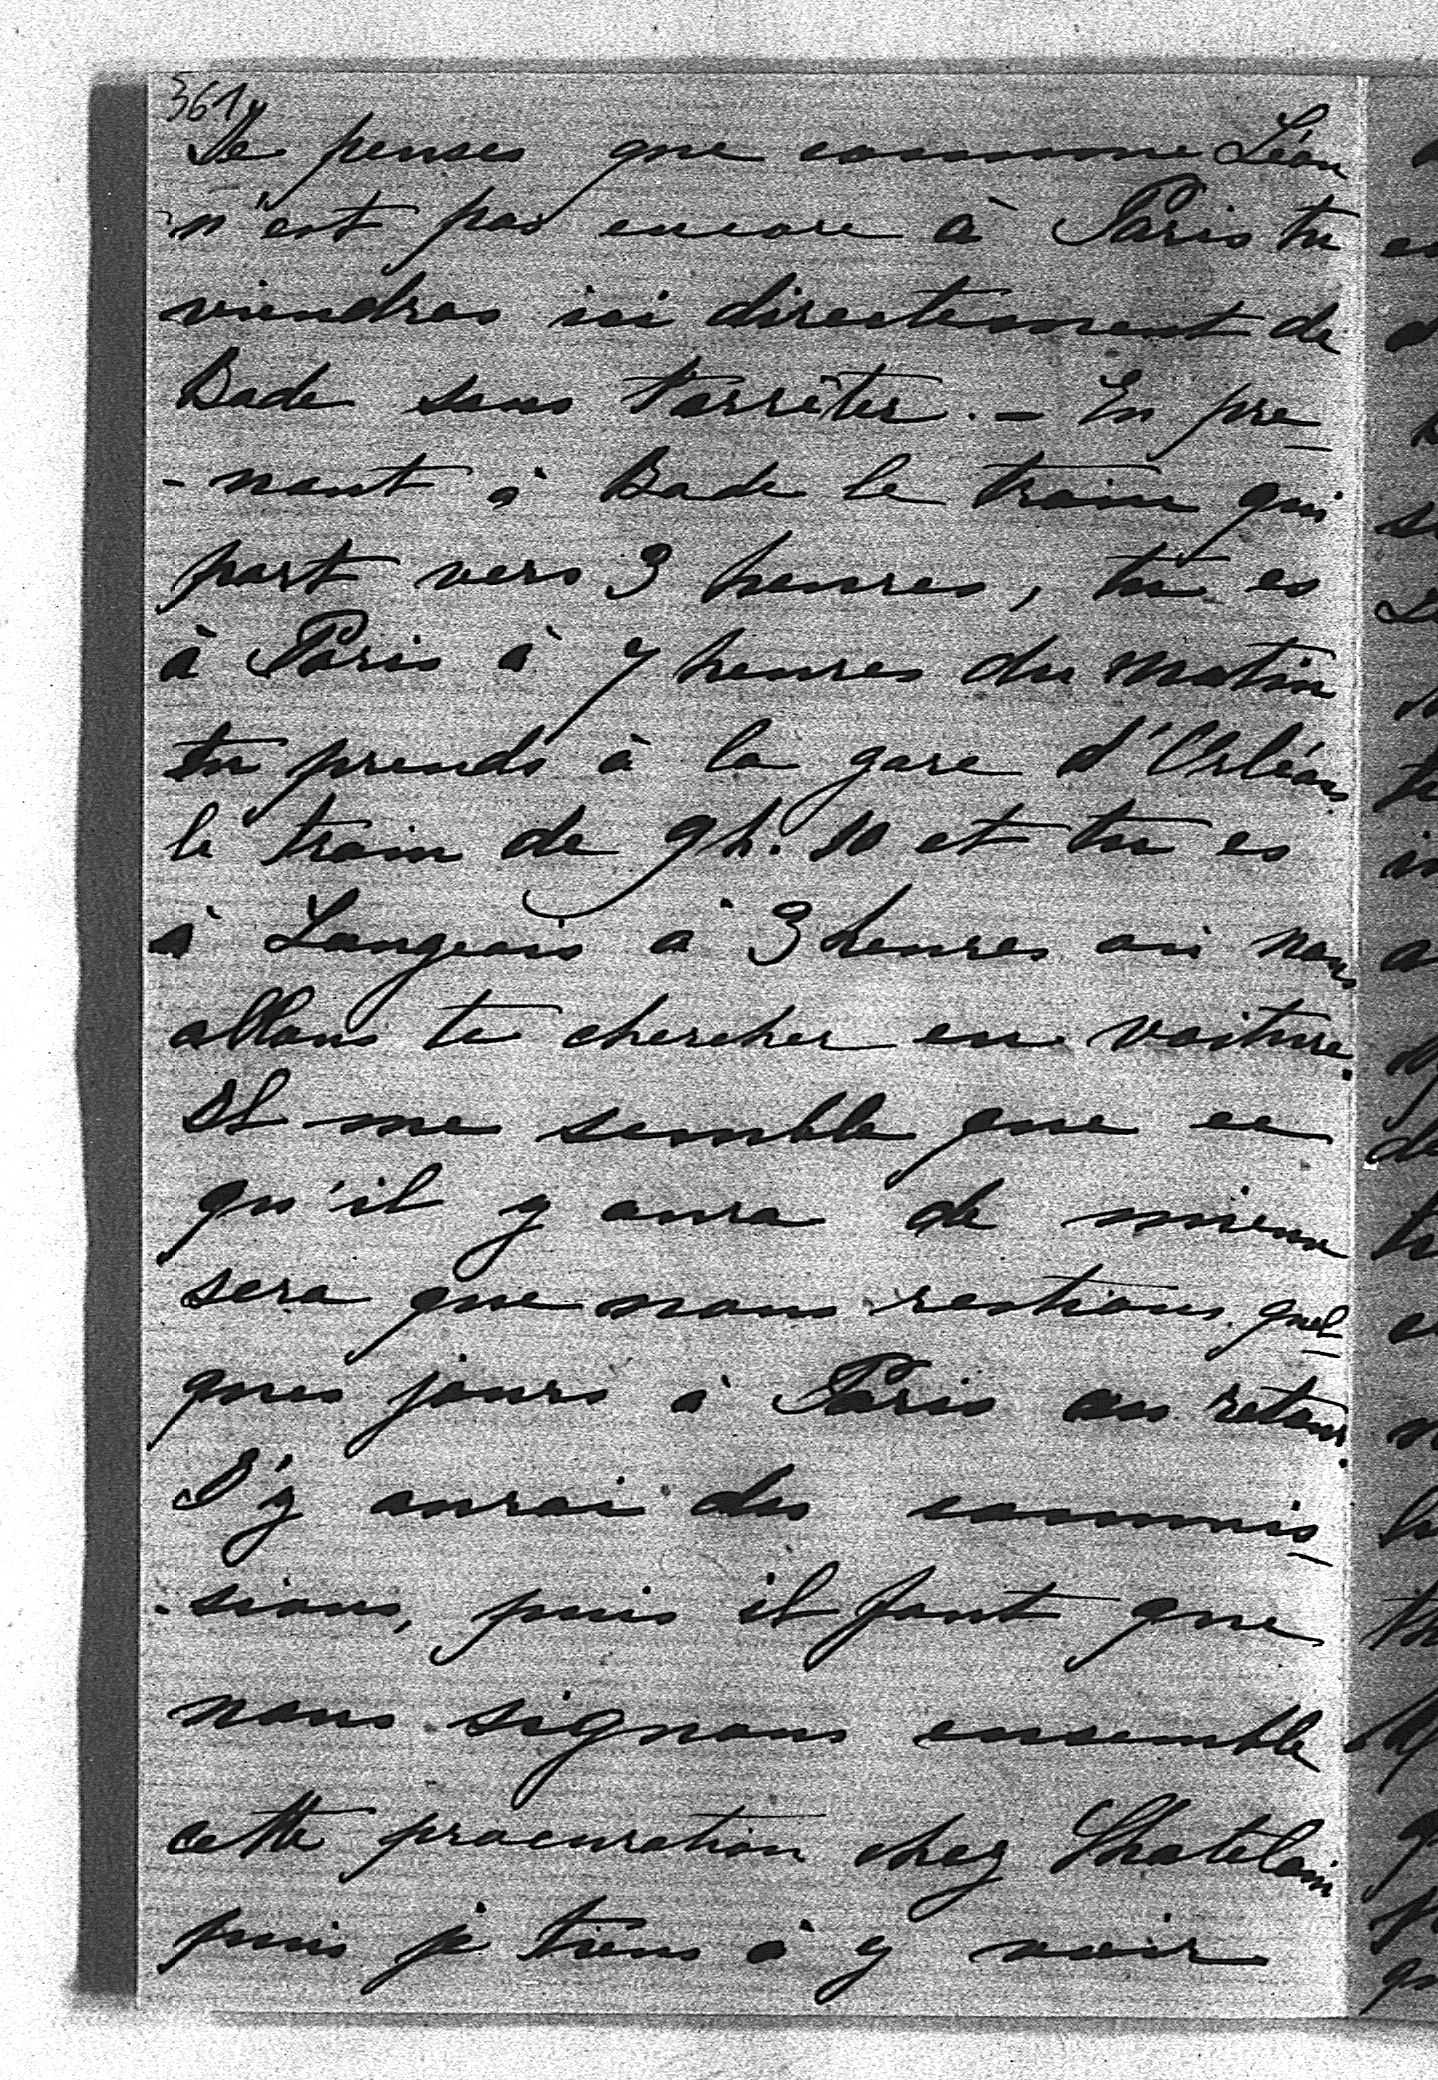 361
Je penses que comme Léon
n'est pas encore à Paris tu
viendras ici directement de
Bade sans t'arrêter. – En pre-
-nant à Bade le train qui
part vers 3 heures, tu es
à Paris à 7 heures du matin
tu prends à la gare d'Orléans
le train de 9h. 10 et tu es
à Langeais à 3 heures où nous
allons te chercher en voiture.
Il me semble que ce
qu'il y aura de mieux
sera que nous restions quel-
ques jours à Paris au retour.
J'y aurai des commis-
-sions, puis il faut que
nous signons ensemble
cette procuration chez Chatelain
puis je tiens à y voir